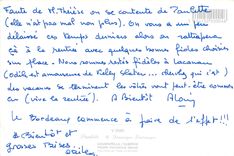 Faute de M. Thérèse on se contente de Paulette
(elle n'est pas mal non plus). On vous a un peu
délaissé ces temps derniers alors on rattrapera
ça à la rentrée avec quelques bonnes fiches choisies
sur place. Nous sommes restés fidèles à Lacanau
(Odile est amoureuse de Kelly Slater... cherchez qui c'est)
Les vacances se terminent les vôtres vont peut-être commencer
(vive la rentrée). A Bientôt Alain
Le Bordeaux commence à faire de l'effet!!!
A Bientôt et
grosses bises
Odile